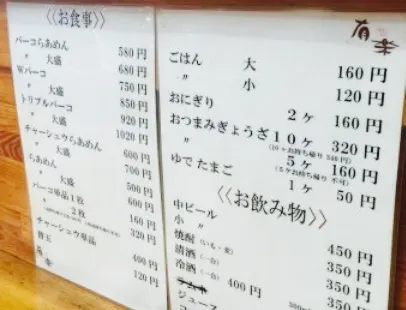 《お食事》
パーコらあめん 580円
〃 大盛 680円
Wパーコ 750円
〃 大盛 850円
トリプルパーコ 920円
〃 大盛 1020円
チャーシュウらあめん 600円
〃 大盛 700円
らあめん 500円
〃 大盛 600円
パーコ単品1枚 160円
〃 2枚 320円
チャーシュウ単品 400円
替玉 120円
有楽
有楽
ごはん 大 160円
〃 小 120円
おにぎり 2ヶ 160円
おつまみぎょうざ10ヶ 320円
(10ヶお持ち帰り 340円)
〃 5ヶ 160円
(5ヶお持ち帰り 不可)
ゆでたまご 1ヶ 50円
《お飲み物》
中ビール 450円
小 〃 350円
焼酎(いも・麦) 350円
清酒(一合) 350円
冷酒(一合) 400円
ラムネ
ジュース